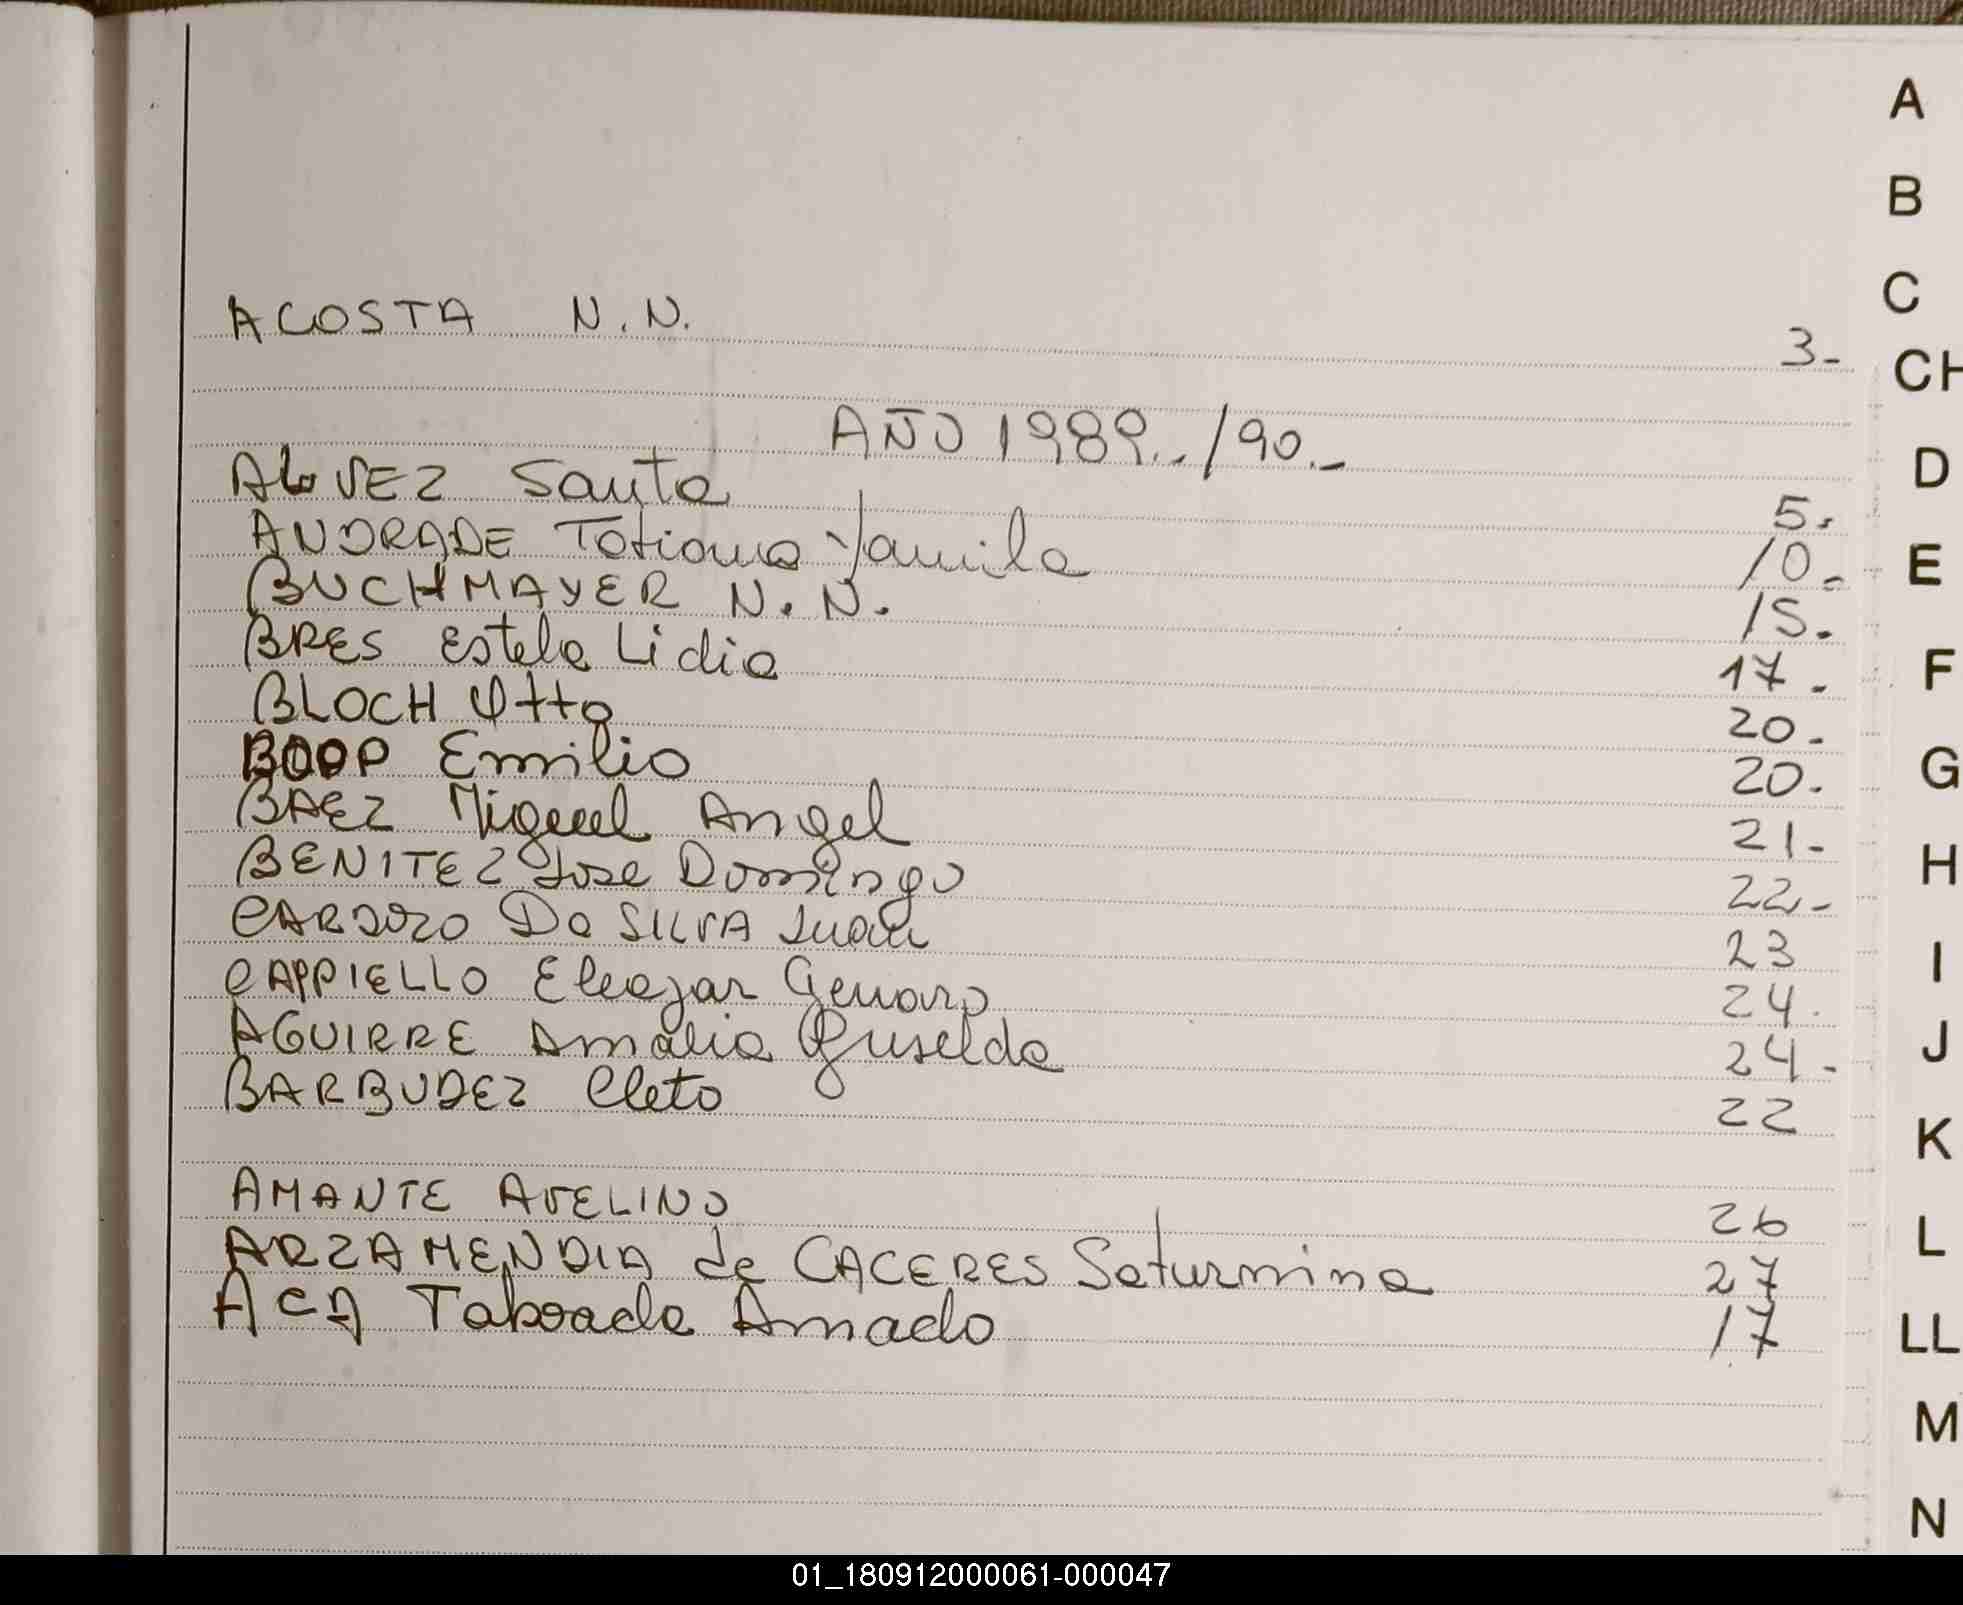 ACOSTA N.N. 3.-
AÑO 1989.-/90.-
ALVEZ Santa 5.
ANDRADE Tatiana Yamila 10.-
BUCHMAYER N.N. 15.
BRES Estela Lidia 17.-
BLOCH Otto 20.-
BOOP Emilio 20.
BAEZ Miguel Angel 21.-
BENITEZ Jose Domingo 22.-
CARDOZO Da SILVA Juan 23
CAPPIELLO Eleazar Genaro 24.
AGUIRRE Amalia Griselda 24.-
BARBUDEZ Cleto 22
AMANTE AVELINO 26
ARZAMENDIA de CACERES Saturnina 27
ACA Taboada Amado 17
A
B
C
CH
D
E
F
G
H
I
J
K
L
LL
M
N
01_180912000061-000047